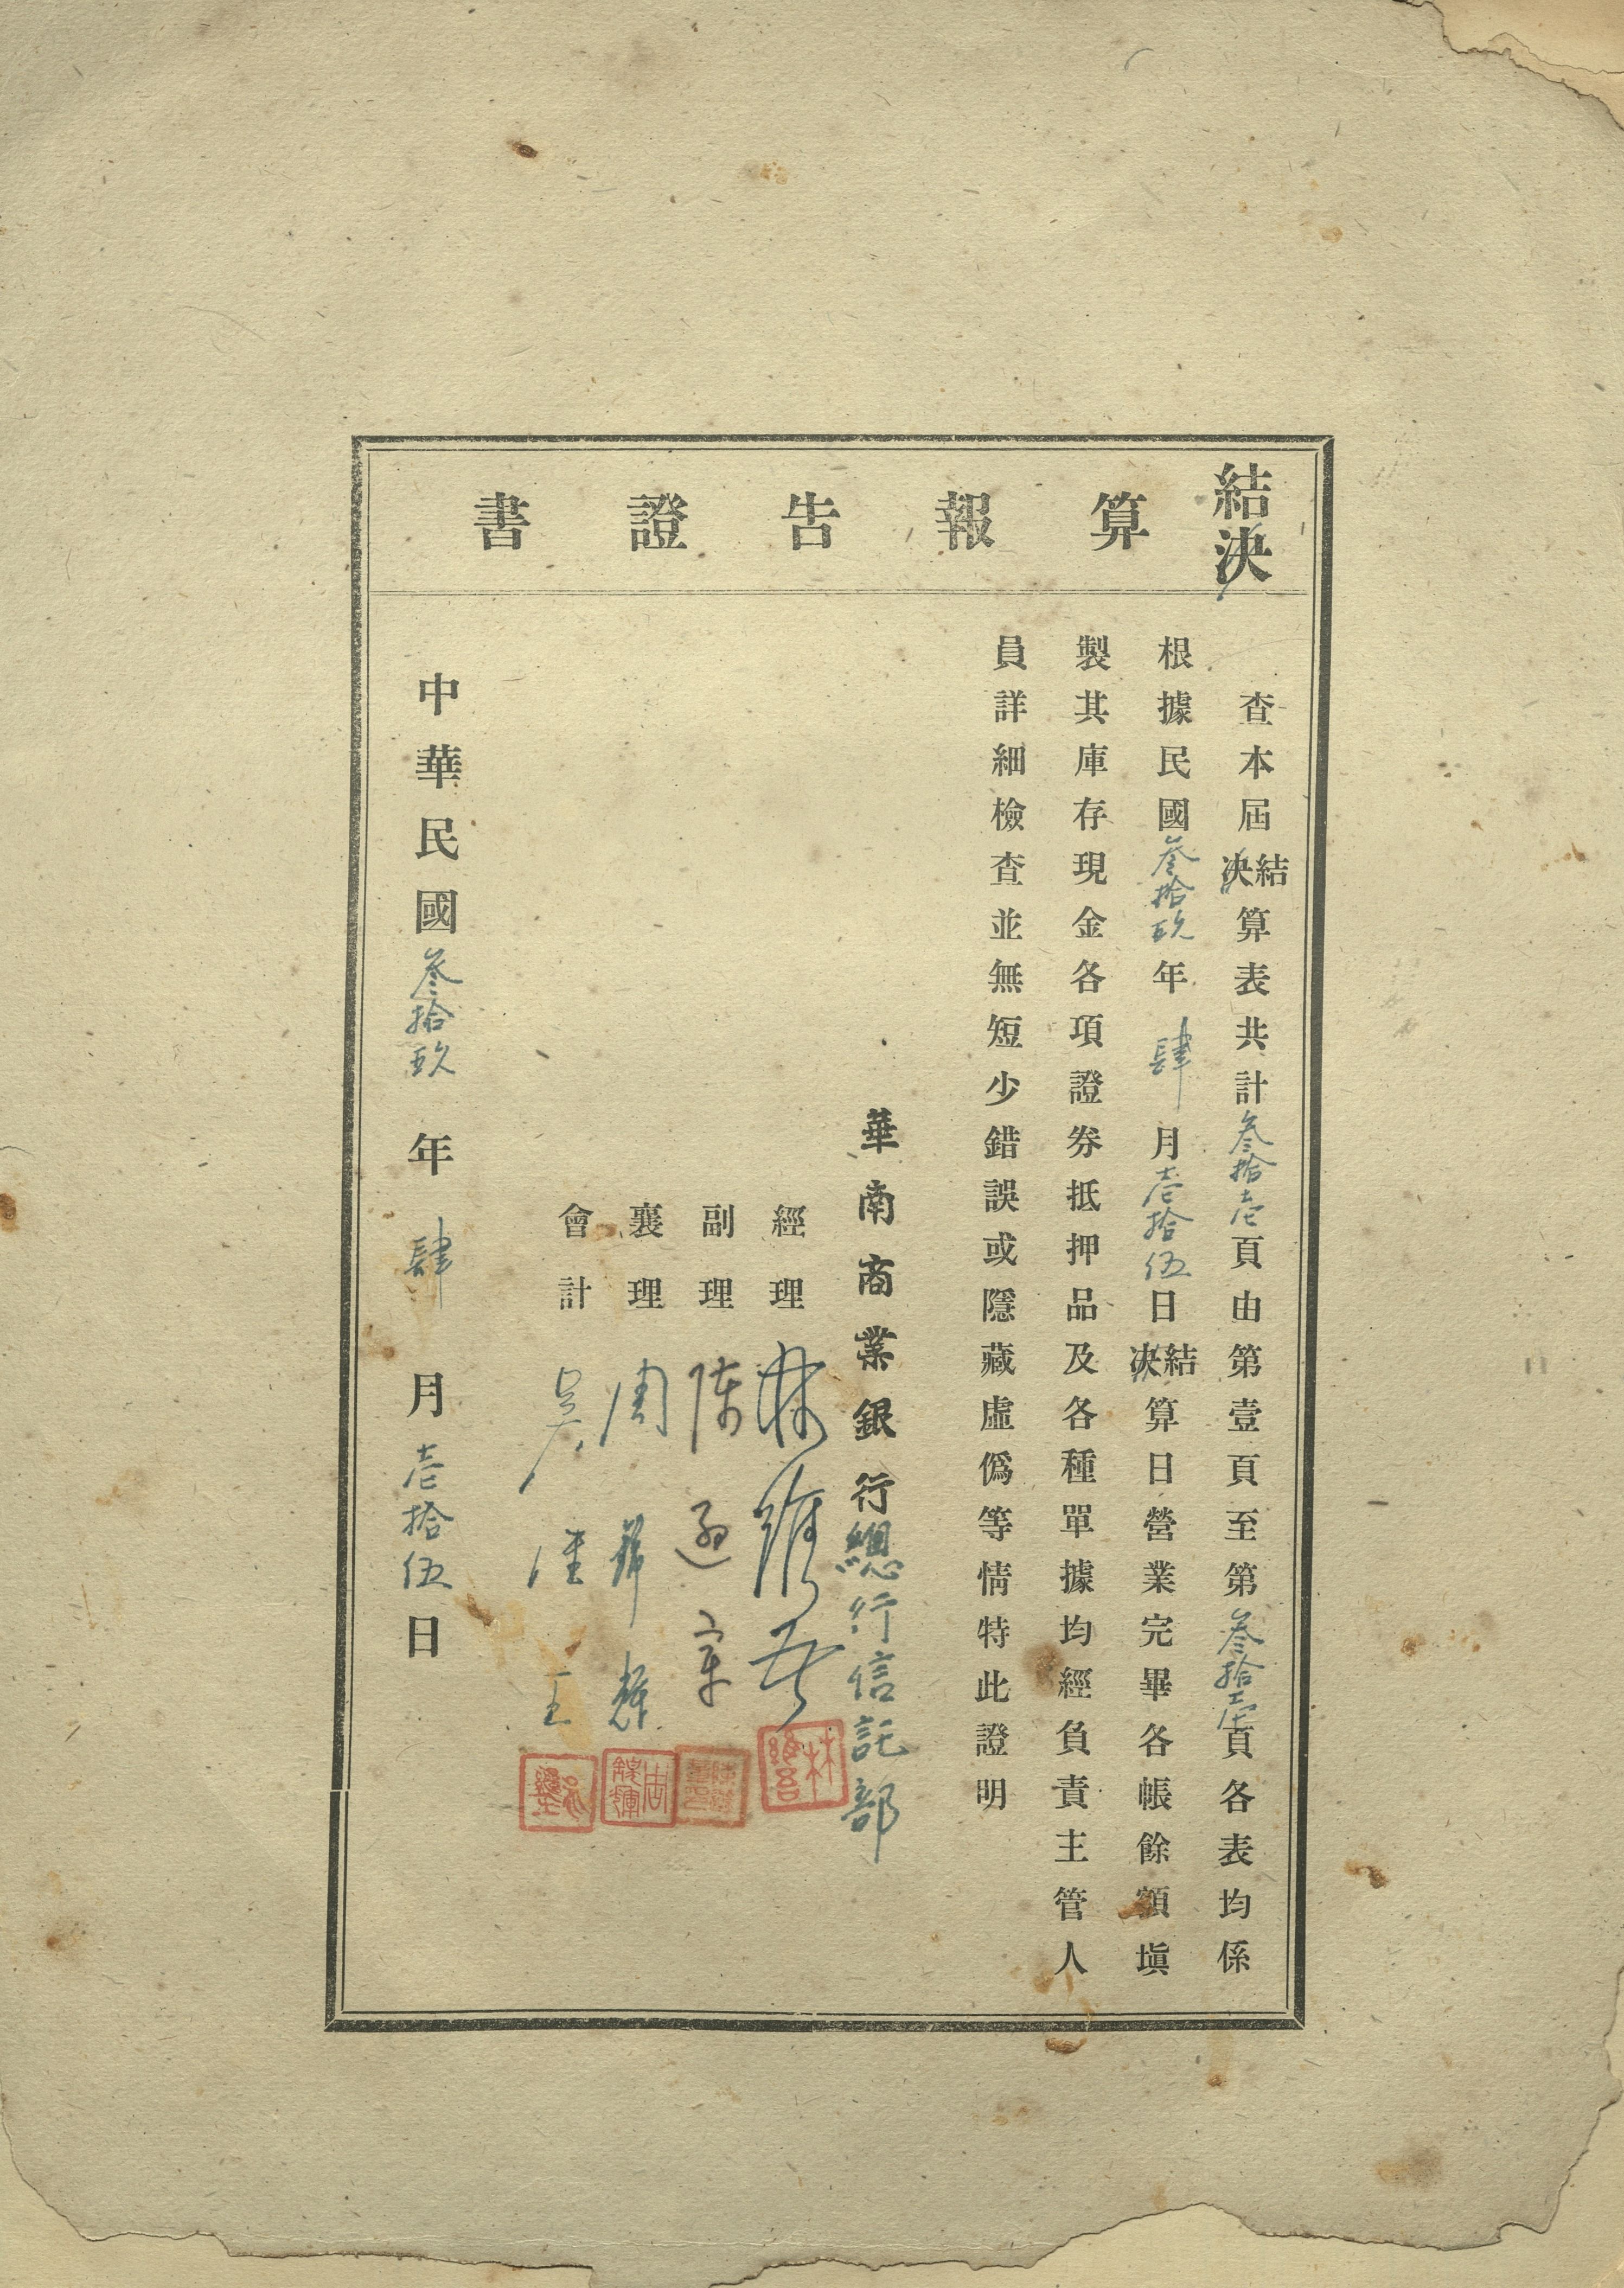 結決算報告證書
查本屆結決算表共計叁拾壱頁由第壹頁至第叁拾壹頁各表均係
根據民國叁拾玖年肆月壱拾伍日結決算日營業完畢各帳餘額塡
製其庫存現金各項證券抵押品及各種單據均經負責主管人
員詳細檢查並無短少錯誤或隱藏虛僞等情特此證明
華南商業銀行總行信託部
經理 林維吾
副理 陳遜章
襄理 周 輝
會計 吳 王
中華民國叁拾玖年肆月壱拾伍日
林維吾
周 輝